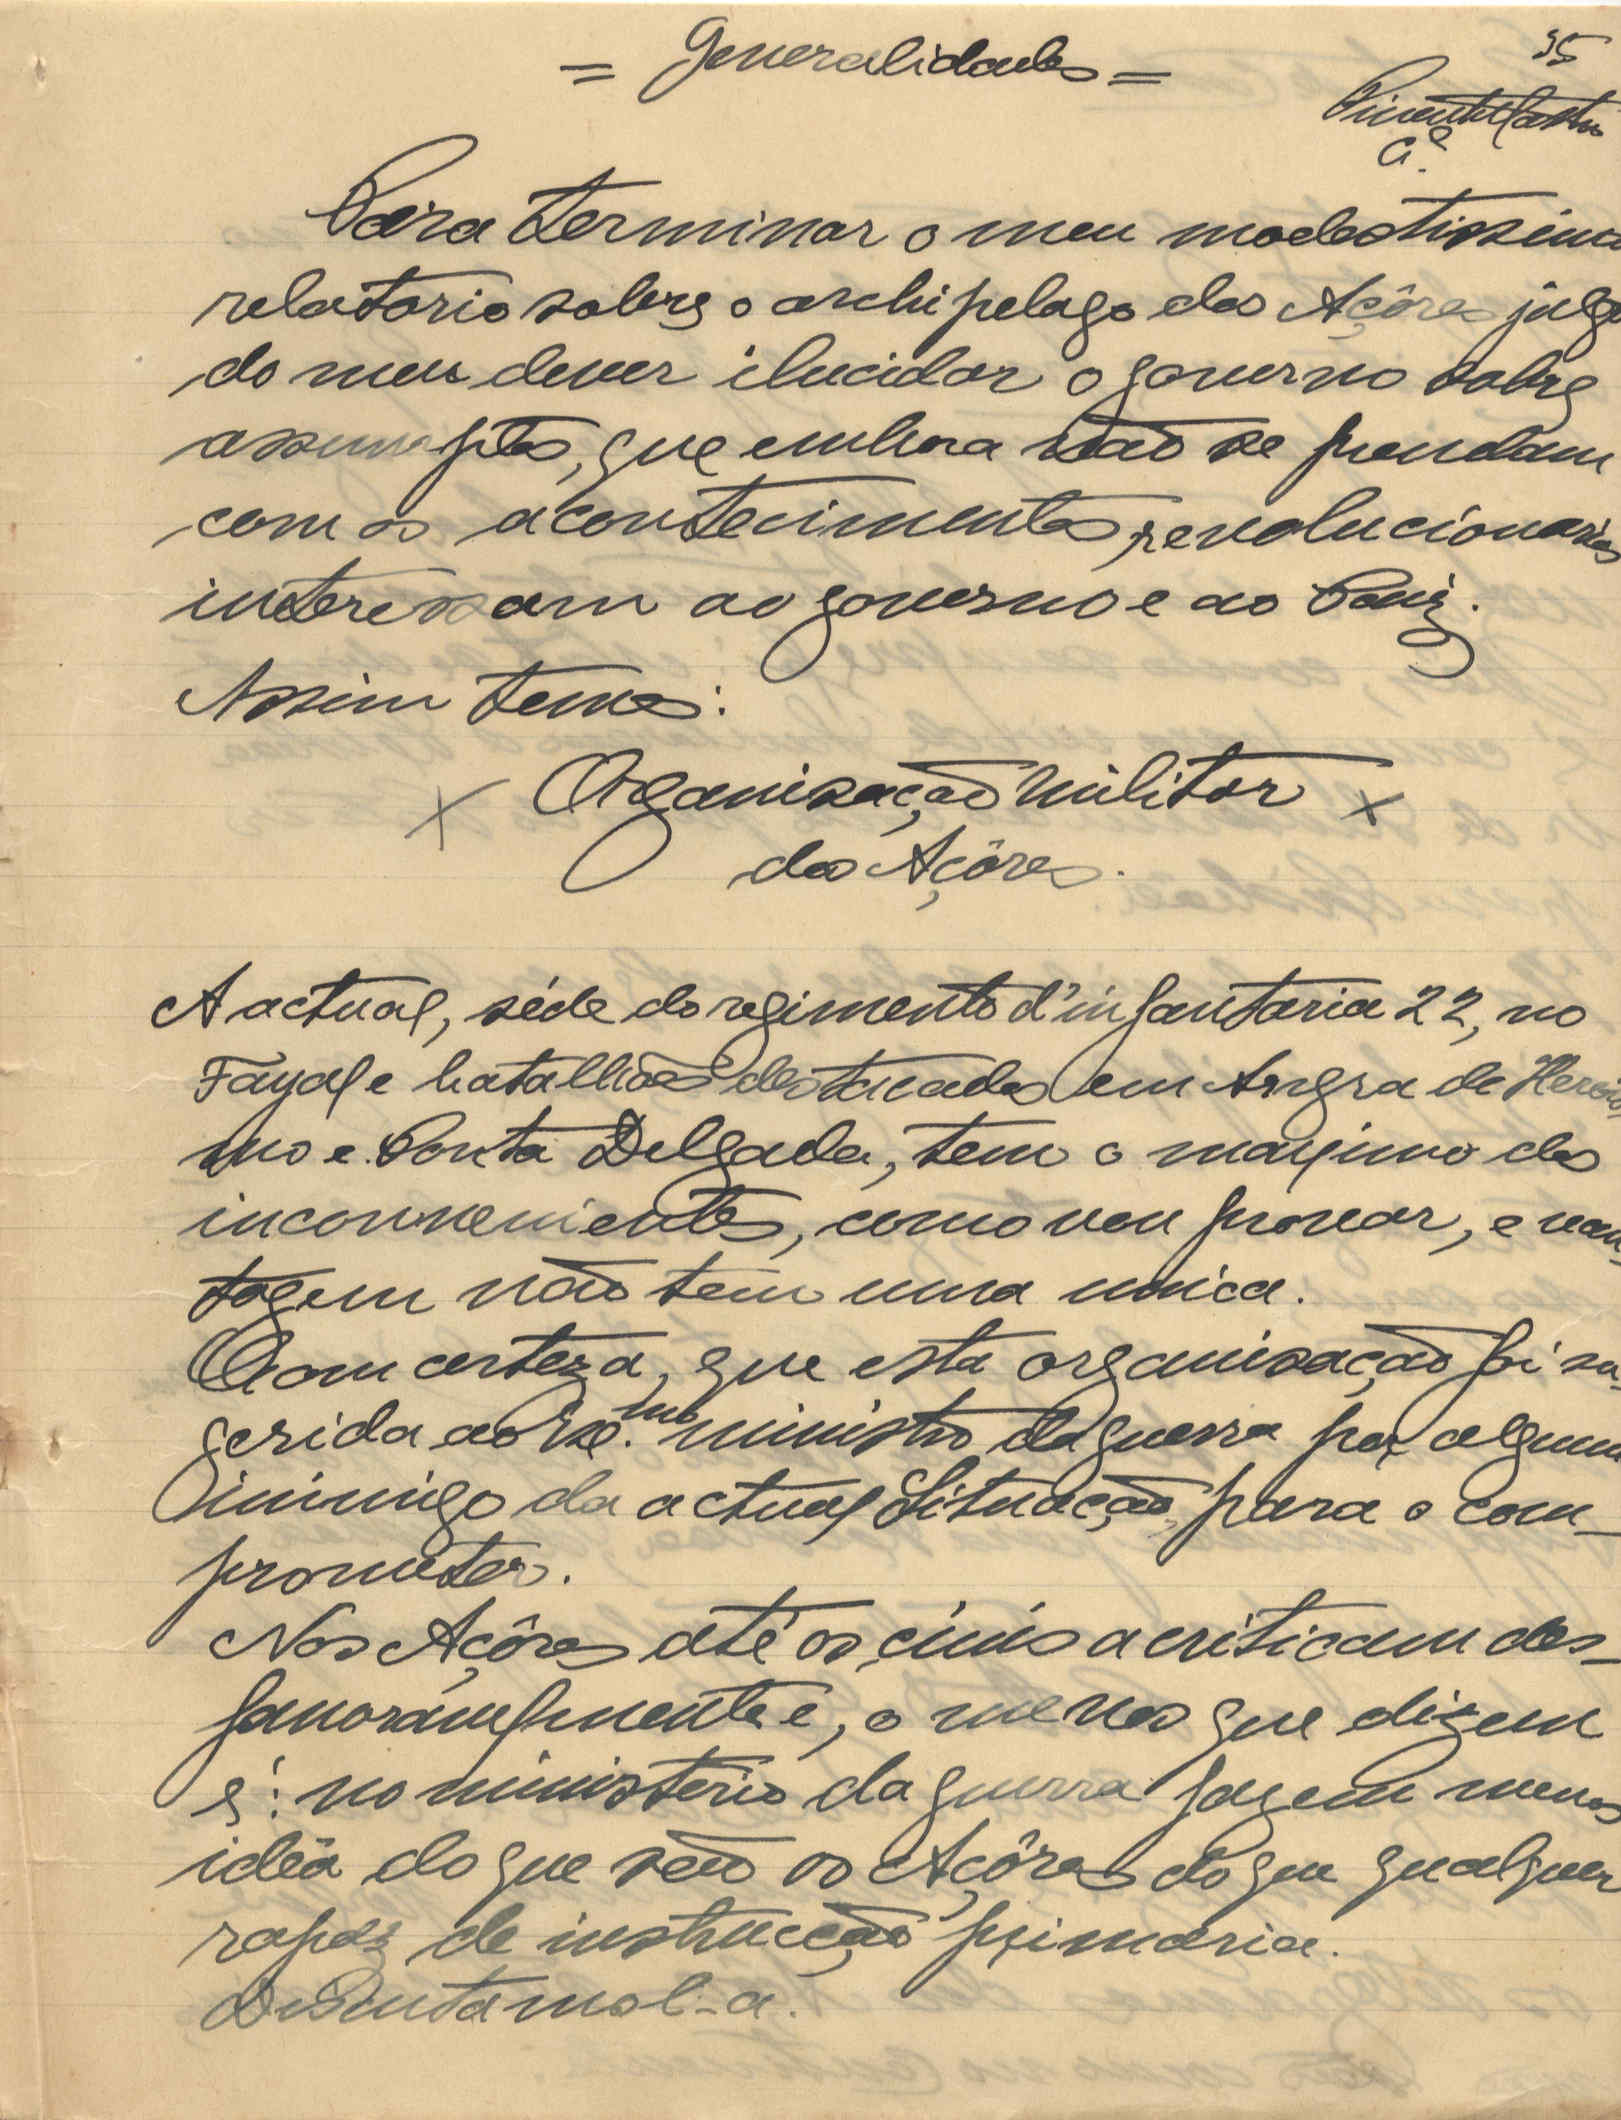 = Generalidades =
35
Pimentel Castro
Para terminar o meu modestissimo
relatorio sobre o archipelago dos Açôres julgo
do meu dever ilucidar o governo sobre
assumptos, que embora não se prendam
com os acontecimentos revolucionarios
interessam ao governo e ao Paiz.
Assim temos:
x Organisação militar x
dos Açôres.
A actual, séde do regimento d'infantaria 22, no
Fayal e batalhões destacados em Angra do Herois
mo e Ponta Delgada, tem o maximo dos
inconvenientes, como vou provar, e van
tagem não tem uma unica.
Com certeza, que esta organisação foi su-
gerida ao Exc.mo ministro da guerra por algum
inimigo da actual Situação, para o com-
prometer.
Nos Açôres até os civis a criticam des-
favoravelmente e, o menos que dizem
é: no ministerio da guerra fazem menos
idêa do que são os Açôres do que qualquer
rapaz de instrucção primaria.
Discutamol-a.